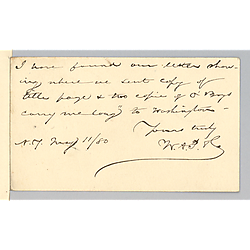 I have found our letter show-
ing where we sent copy of
title page & two copies of O Boys
carry me long to Washington
Yours truly
N.Y. May 11/80
W.A.P. & Co